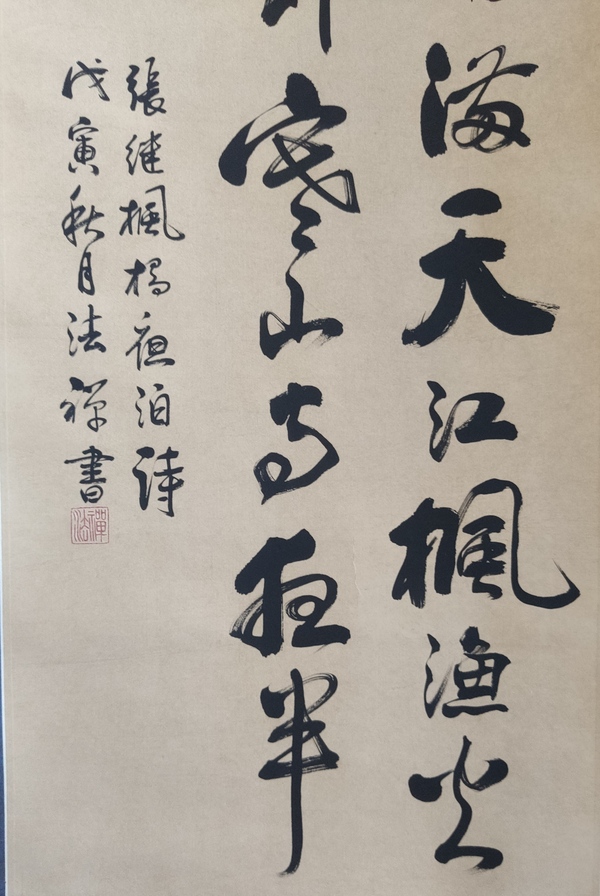 滿天江楓漁火
寒山寺夜半
張继楓橋夜泊詩
戊寅秋月法禅書
禪法